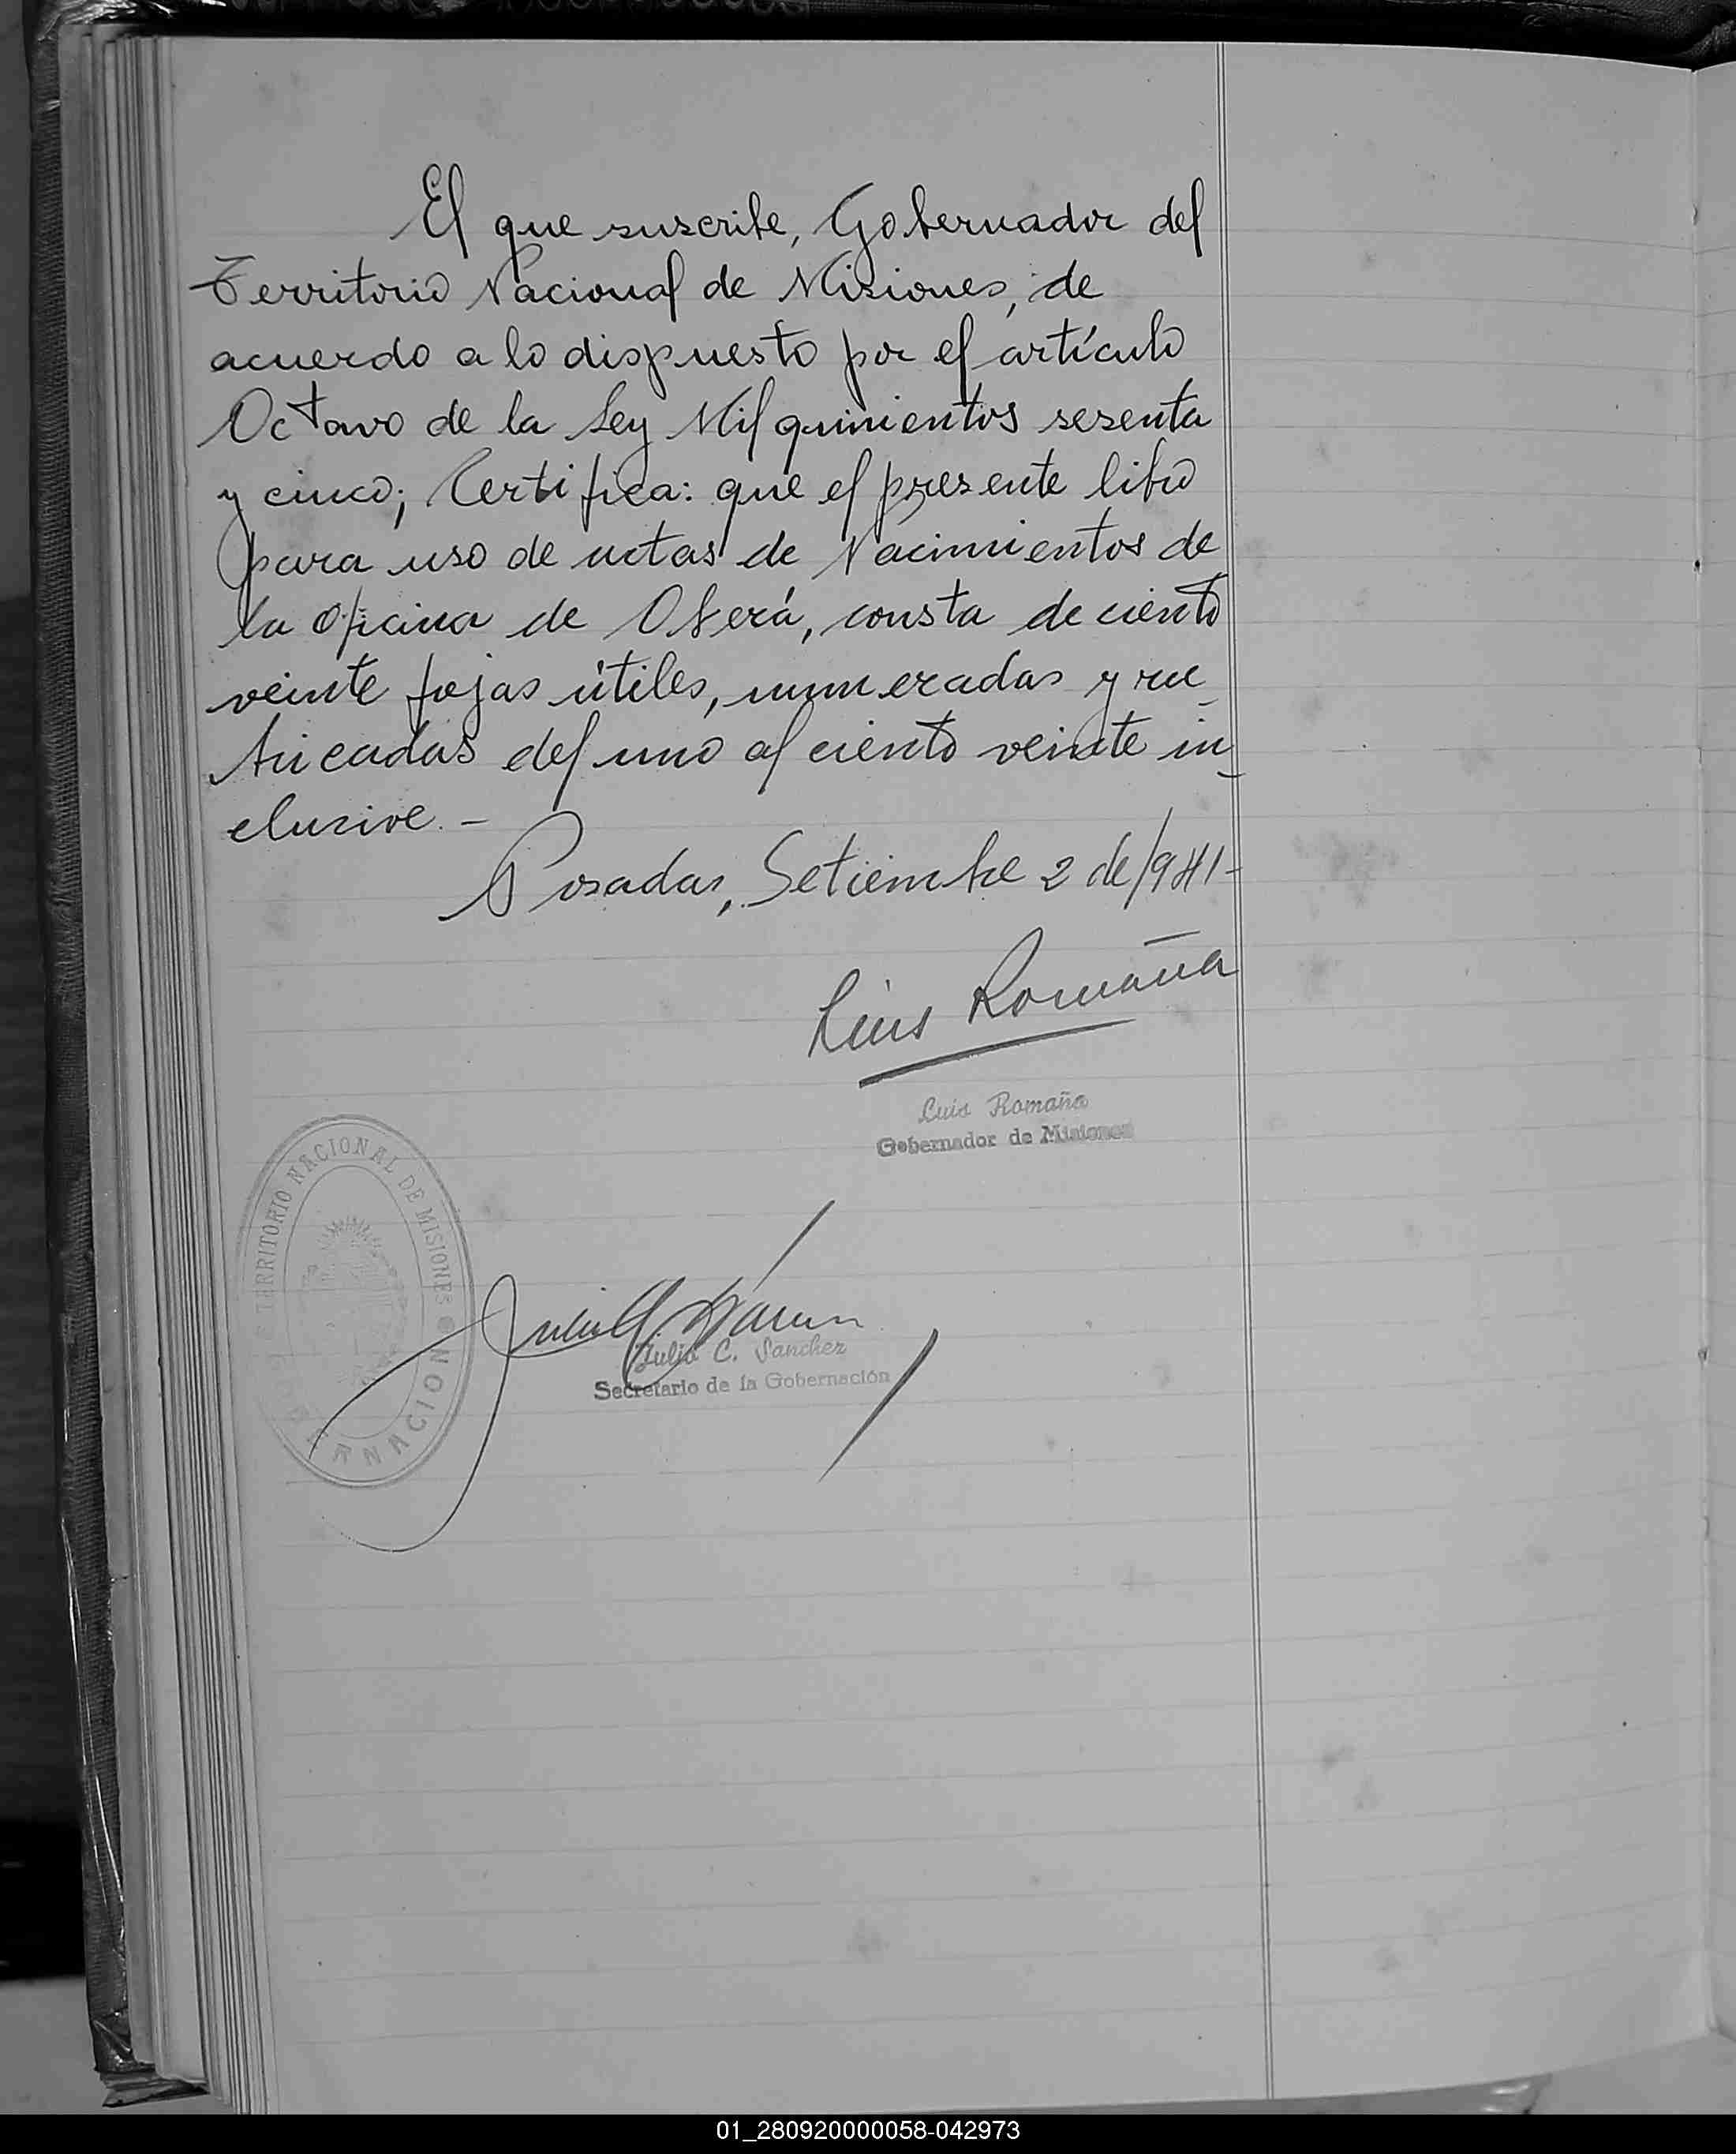 El que suscribe, Gobernador del
Territorio Nacional de Misiones, de
acuerdo a lo dispuesto por el artículo
Octavo de la Ley Mil quinientos sesenta
y cinco; Certifica: que el presente libro
para uso de actas de Nacimientos de
la oficina de Oberá, consta de ciento
veinte fojas útiles, numeradas y ru_
bricadas del uno al ciento veinte in_
clusive. -
Posadas, Setiembre 2 de/941-
Luis Romaña
Luis Romaña
Gobernador de Misiones
TERRITORIO NACIONAL DE MISIONES
Julio C. Sanchez
Secretario de la Gobernación
01_280920000058-042973